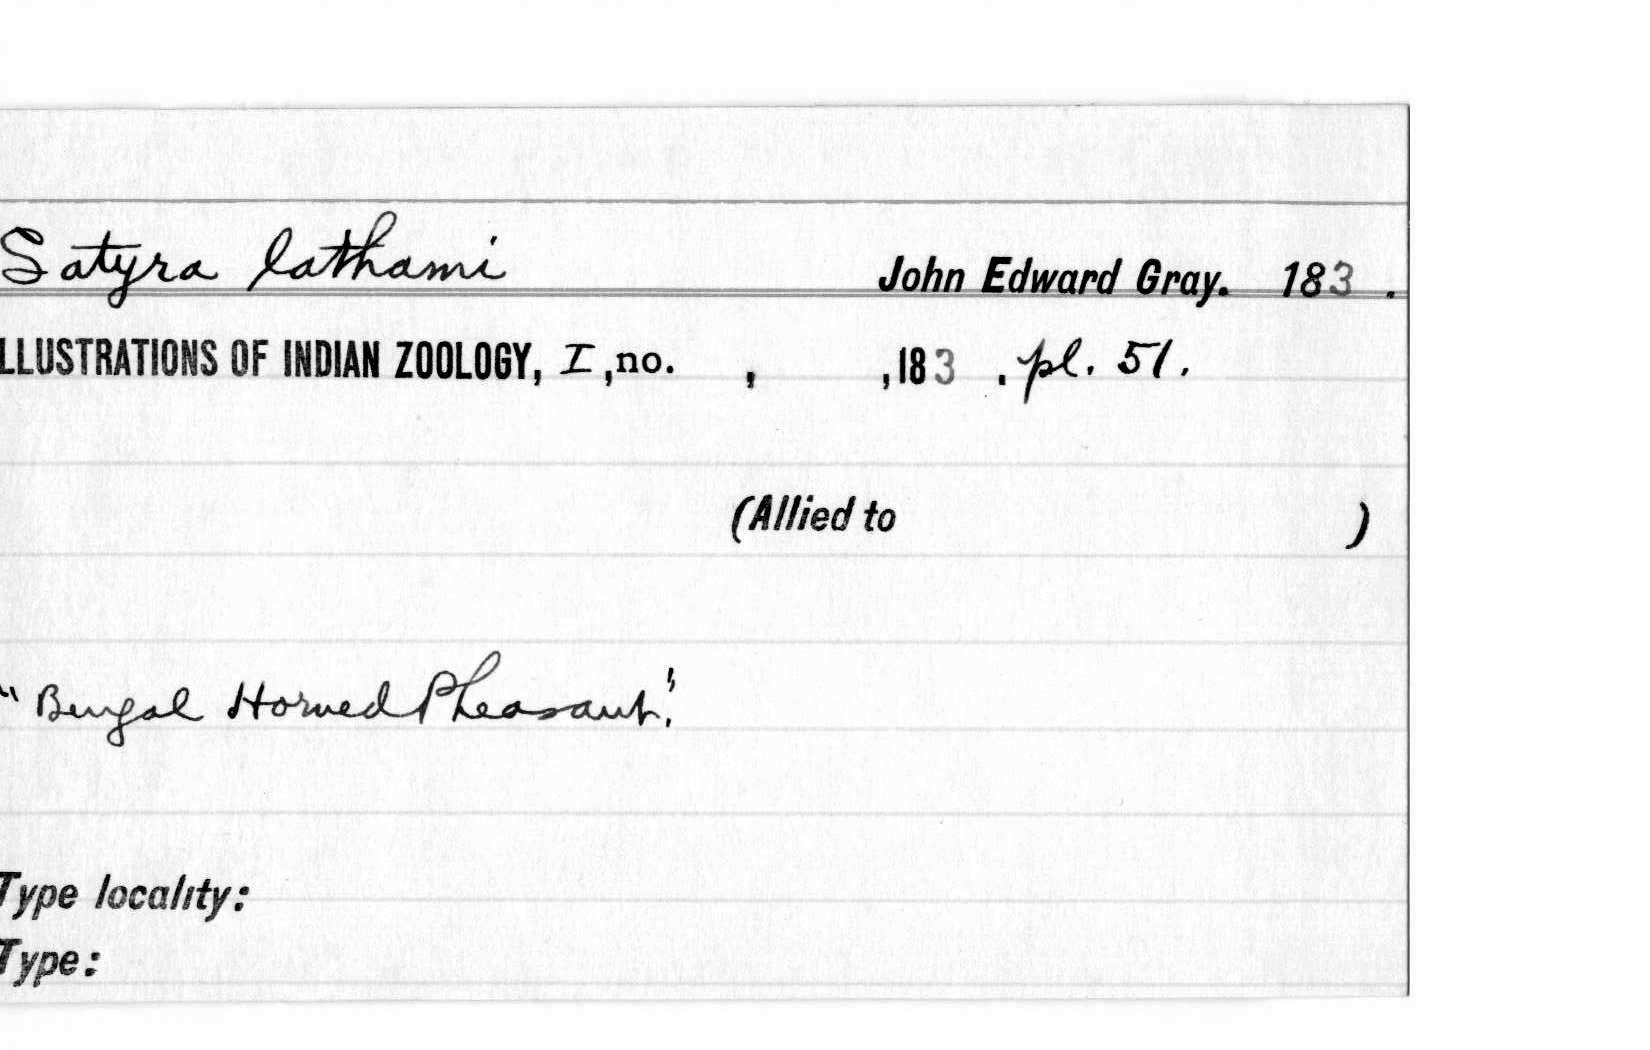 Satyra lathami John Edward Gray. 183 .
LLUSTRATIONS OF INDIAN ZOOLOGY, I, no. , ,183 . pl. 51.
(Allied to )
"Bengal Horned Pheasant".
Type locality:
Type: